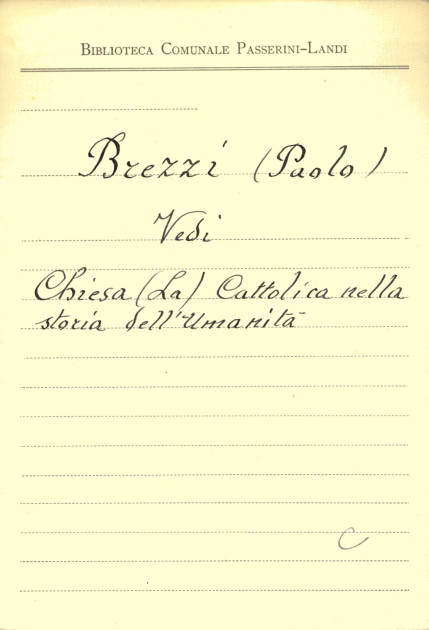 BIBLIOTECA COMUNALE PASSERINI-LANDI
Brezzi (Paolo)
Vedi
Chiesa (La) Cattolica nella
storia dell'Umanità
C